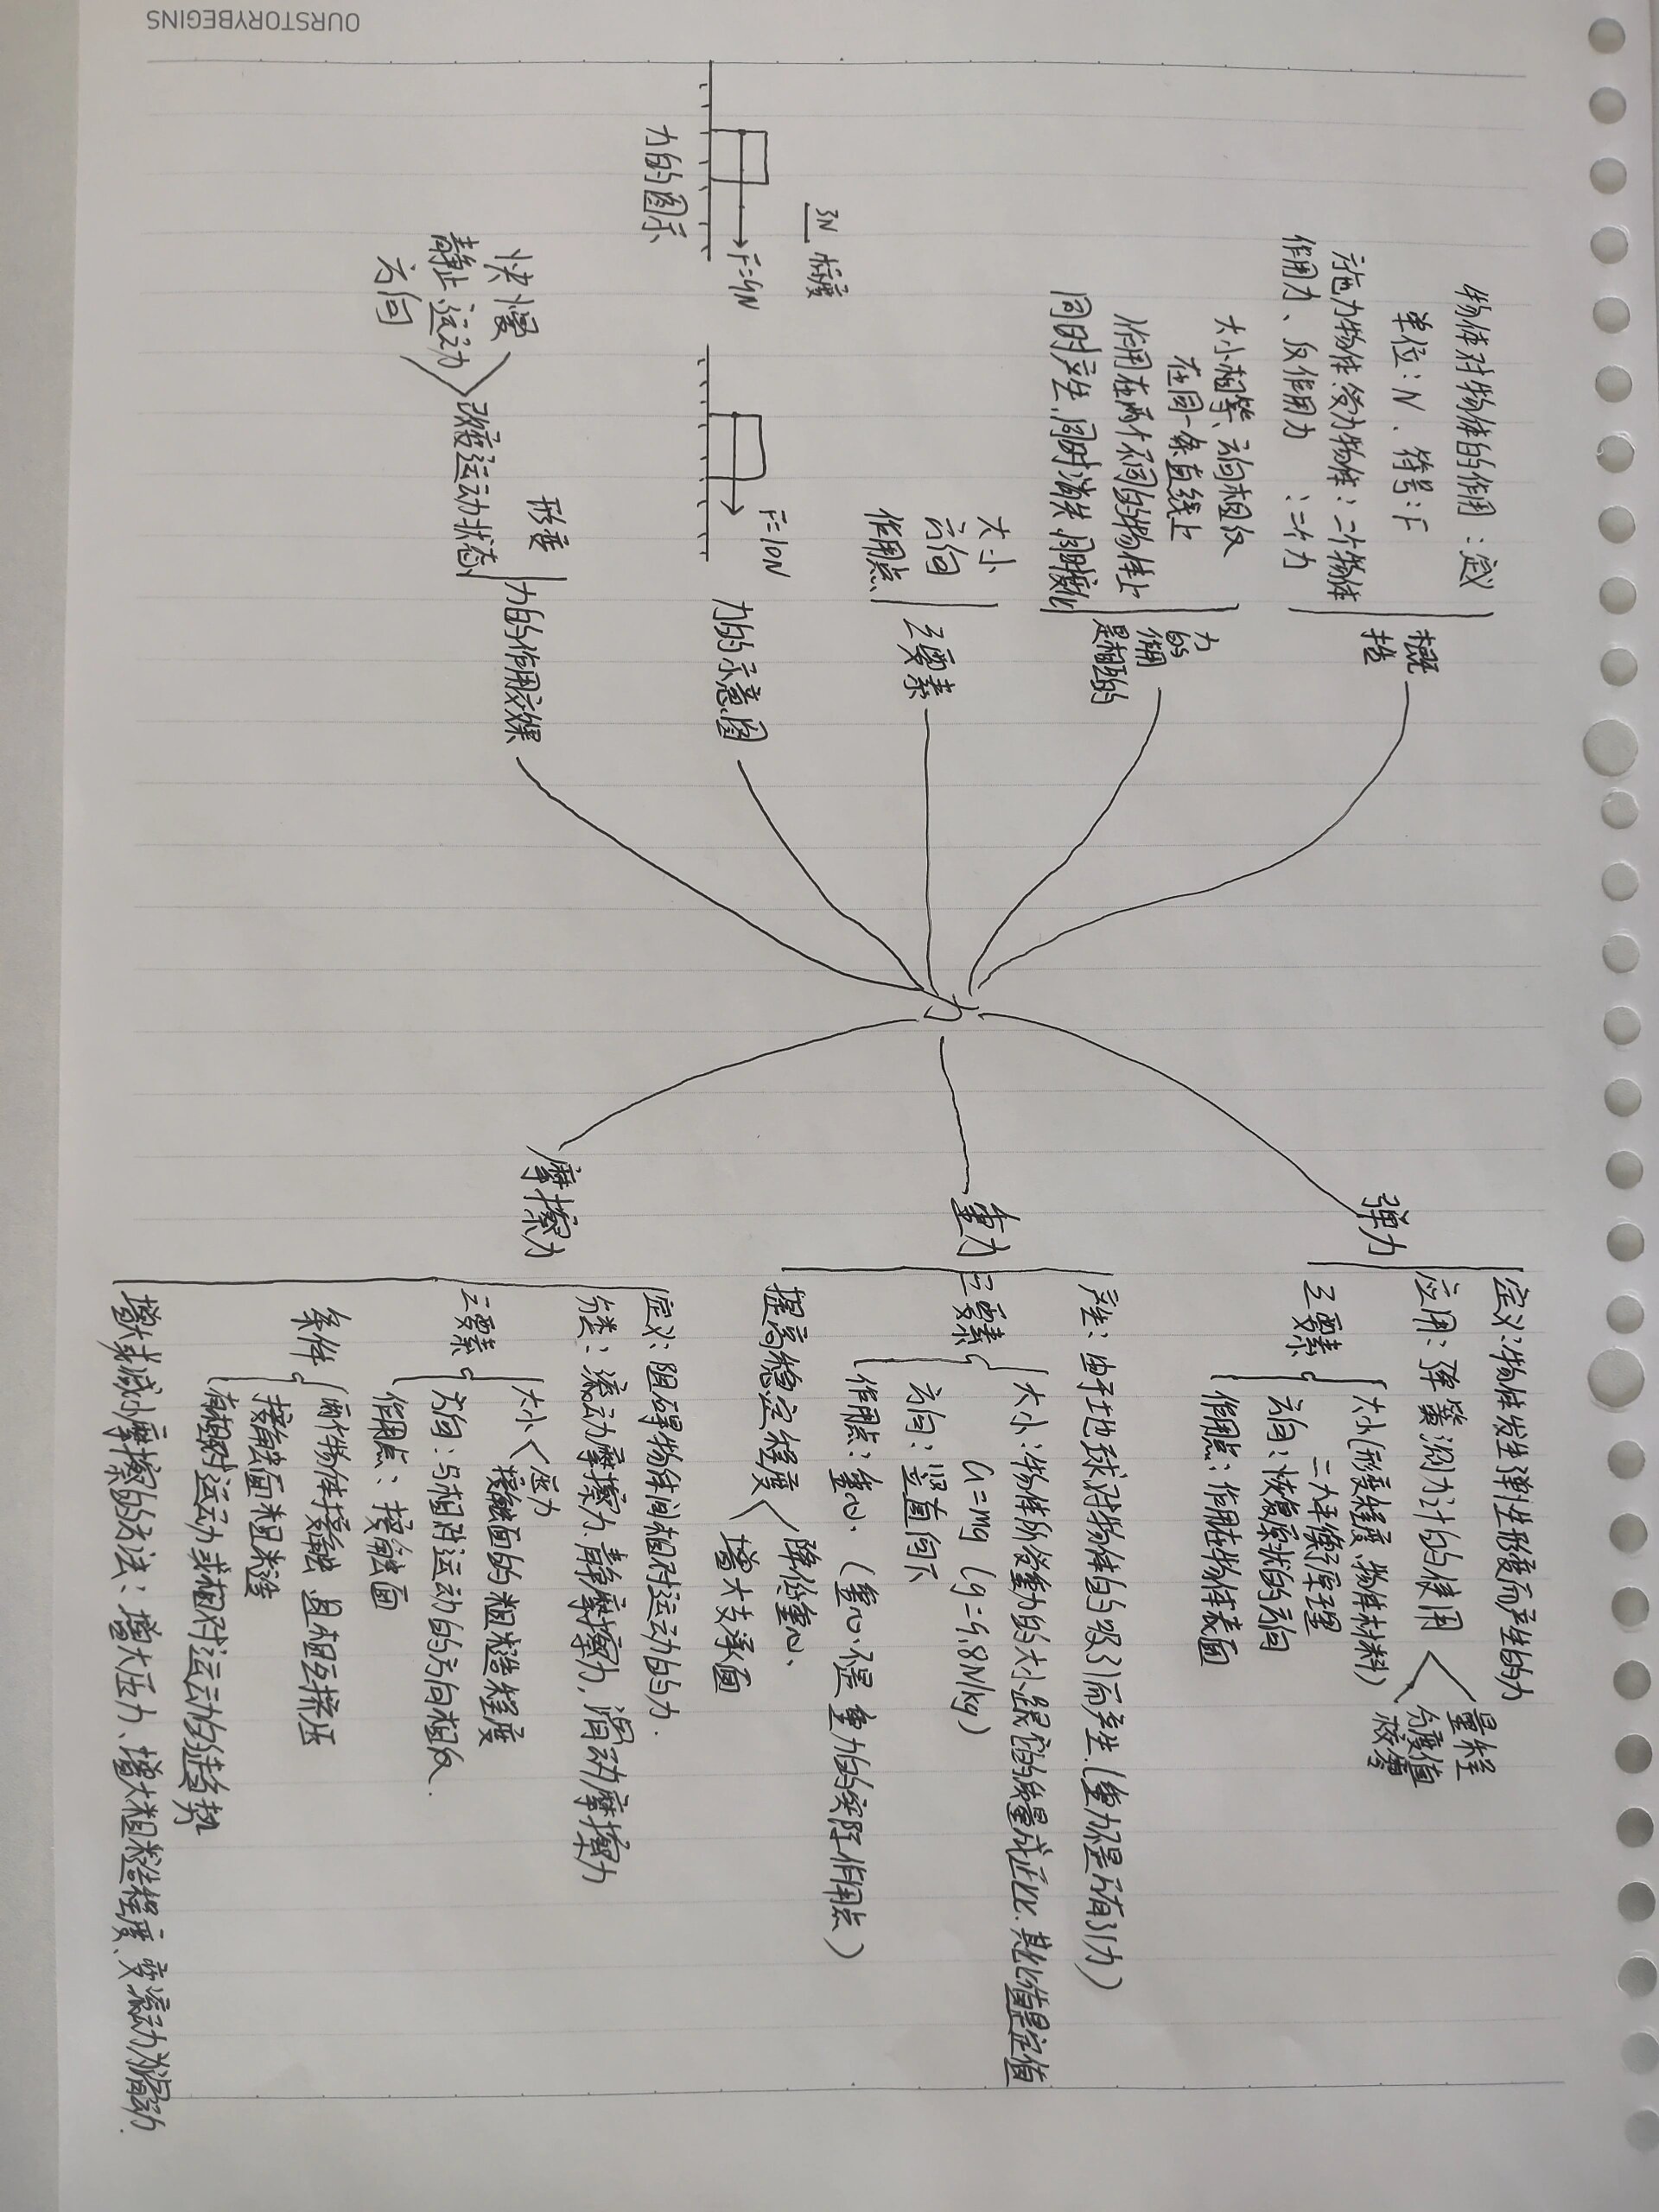 物体对物体的作用：定义
单位：N 、符号：F
施力物体、受力物体：二个物体
作用力、反作用力 ：二个力
概
括
大小相等、方向相反
在同一条直线上
作用在两个不同的物体上
同时产生，同时消失，同时变化
力
的
作用
是相互的
大小
方向
作用点
三要素
3N 标度
F=9N
力的图示
F=10N
力的示意图
形变
改变运动状态
快慢
静止 运动
方向
力的作用效果
力
弹力
定义：物体发生弹性形变而产生的力
应用：弹簧测力计的使用
量程
分度值
校零
三要素
大小(形变程度、物体材料)
二力平衡原理
方向：恢复原状的方向
作用点：作用在物体表面
重力
产生：由于地球对物体的吸引而产生（重力不是万有引力）
三要素
大小：物体所受重力的大小跟它的质量成正比.其比值是定值
G=mg (g=9.8N/kg)
方向：竖直向下
作用点：重心.（重心不是重力的实际作用点）
提高稳定程度
降低重心、
增大支承面
摩擦力
定义：阻碍物体间相对运动的力.
分类：滚动摩擦力.静摩擦力，滑动摩擦力
三要素
大小
压力
接触面的粗糙程度
方向：与相对运动的方向相反.
作用点：接触面
条件
两个物体接触且相互挤压
接触面粗糙
有相对运动或相对运动的趋势
增大或减小摩擦的方法：增大压力、增大粗糙程度、变滚动为滑动.
OURSTORYBEGINS